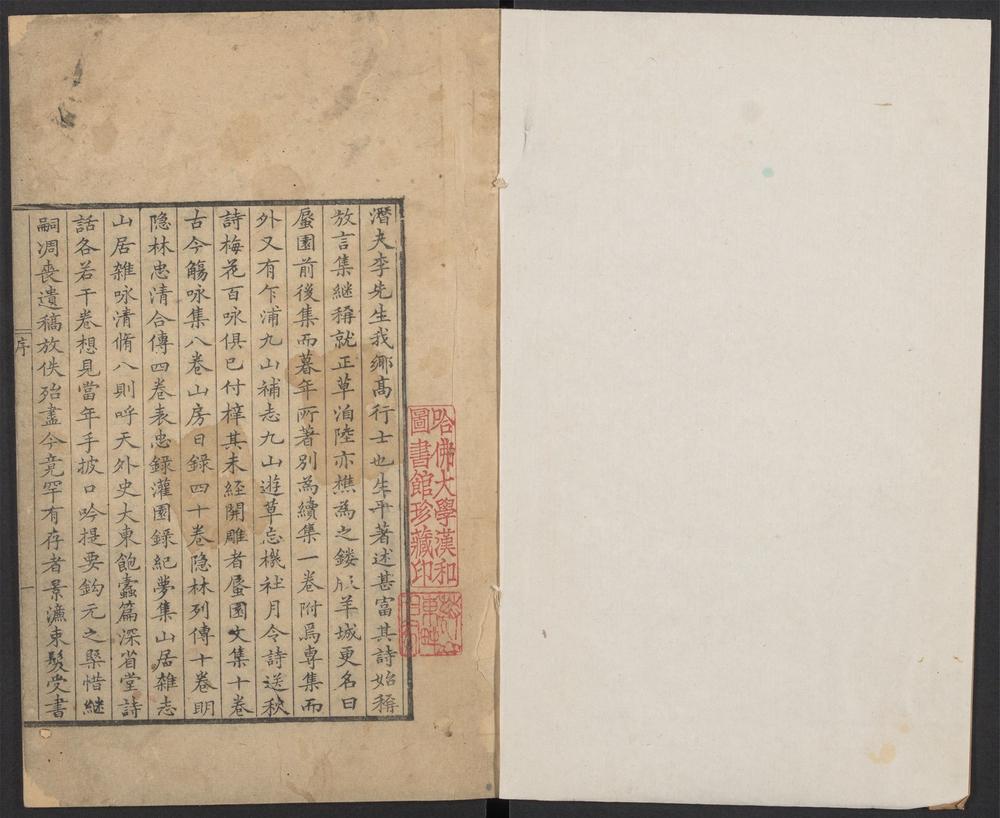 潛夫李先生我鄉高行士也生平著述甚富其詩始稱
放言集継稱就正草洎陸亦樵為之鏤版羊城更名曰
蜃園前後集而暮年所著別為續集一卷附焉專集而
外又有乍浦九山補志九山遊草忘機社月令詩送秋
詩梅花百咏俱已付梓其未經開雕者蜃園文集十卷
古今觴咏集八卷山房日錄四十卷隐林列傳十卷明
隐林忠清合傳四卷表忠錄灌園錄紀夢集山居雜志
山居雜咏清脩八則呼天外史大東飽蠹篇深省堂詩
話各若干卷想見當年手披口吟提要鈎元之槩惜継
嗣凋喪遺稿放佚殆盡今竟罕有存者景濂束髮受書
序
一
哈佛大學漢和
圖書館珍藏印